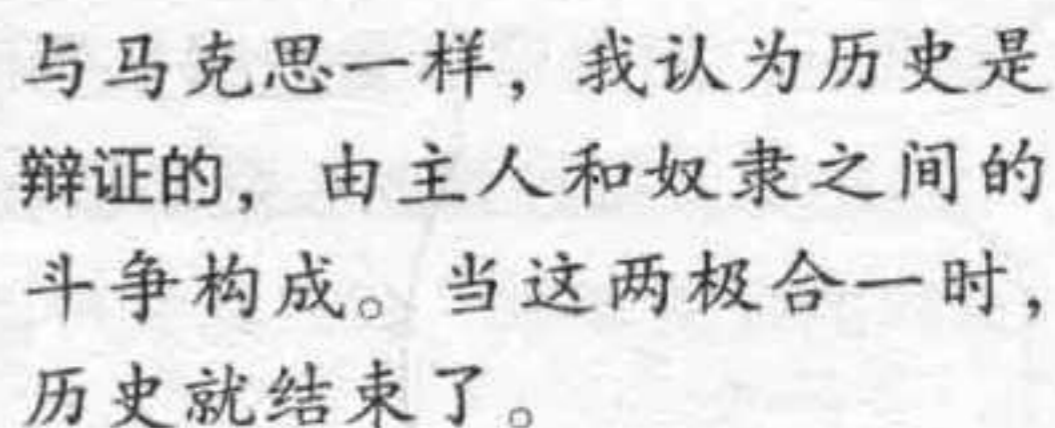 与马克思一样，我认为历史是
辩证的，由主人和奴隶之间的
斗争构成。当这两极合一时，
历史就结束了。